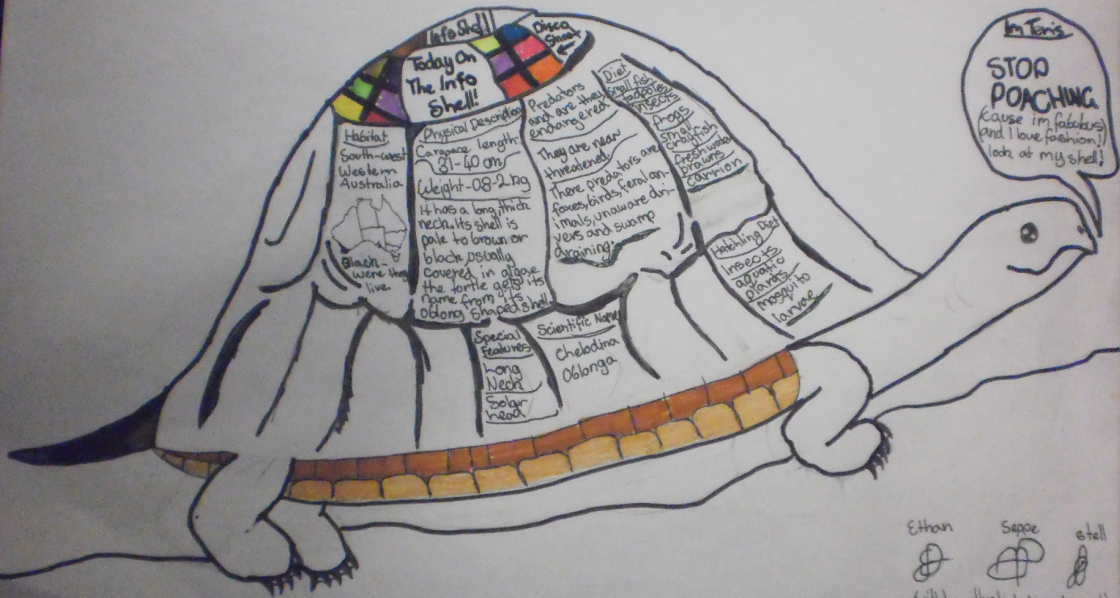 Info Shell
Disco
Sheet
Today On
The Info
Shell!
Habitat
South-west
Western
Australia
Black-
were they
live.
Physical Description
Carapace length:
31-40 cm
Weight-08-2kg
It has a long, thick
neck. Its shell is
pale to brown or
black, usually
covered in algae
the tortle gets its
name from its
oblong shaped shell
Predators
and are they
endangered
They are near
threatened.
There predators are
foxes, birds, feral an-
imals, unaware dri-
vers and swamp
draining.
Diet
Small fish
tadpoles
insects
frogs
small
crayfish
freshwater
prawns
carrion
Hatchling Diet
Insects
aquatic
plants
mosquito
larvae
Special
Features
Long
Neck
Solar
head
Scientific Name
Chelodina
Oblonga
Im Teris
STOP
POACHING
'cause im fabulous
and I love fashion!!
look at my shell!
Ethan
Seppe
stell